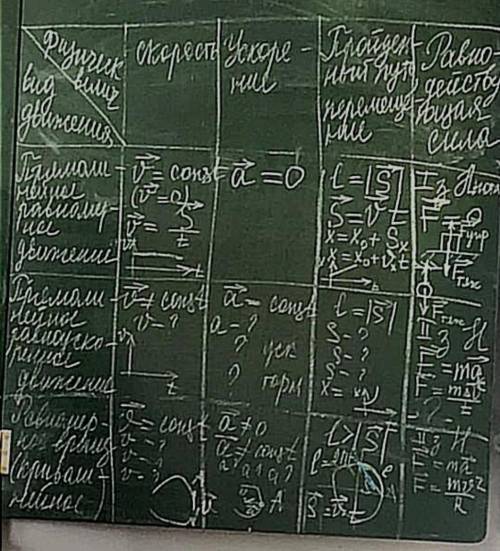 Физическ велич
вид движения
скорость
Ускоре-
ние
Пройден-
ный путь
перемеще-
ние
Равно
действ
ующая
сила
Прямоли-
нейное
равномер-
ное
движение
v⃗ = const
(v⃗ = 0)
v⃗ = S⃗/t
v
t
a⃗ = 0
l = |S⃗|
S⃗ = v⃗ t
x = x₀ + Sₓ
x = x₀ + vₓt
I з Ньют
F⃗ = 0
Fупр
Fтяж
Fтяж
Прямоли-
нейное
равноуско-
ренное
движение
v⃗ ≠ const
v = ?
v
t
a⃗ = const
a - ?
? уск
? торм
l = |S⃗|
S = ?
S = ?
S = ?
x =
II з Н
F⃗ = ma⃗
F = mΔv/t
?
Равномер-
ное
криволи-
нейное
v⃗ = const
v = ?
v = ?
v = ?
a⃗ ≠ 0
a⃗ ≠ const
a? a? a?
A
l > |S⃗|
II з Н
F⃗ = ma⃗
F = mv²/R